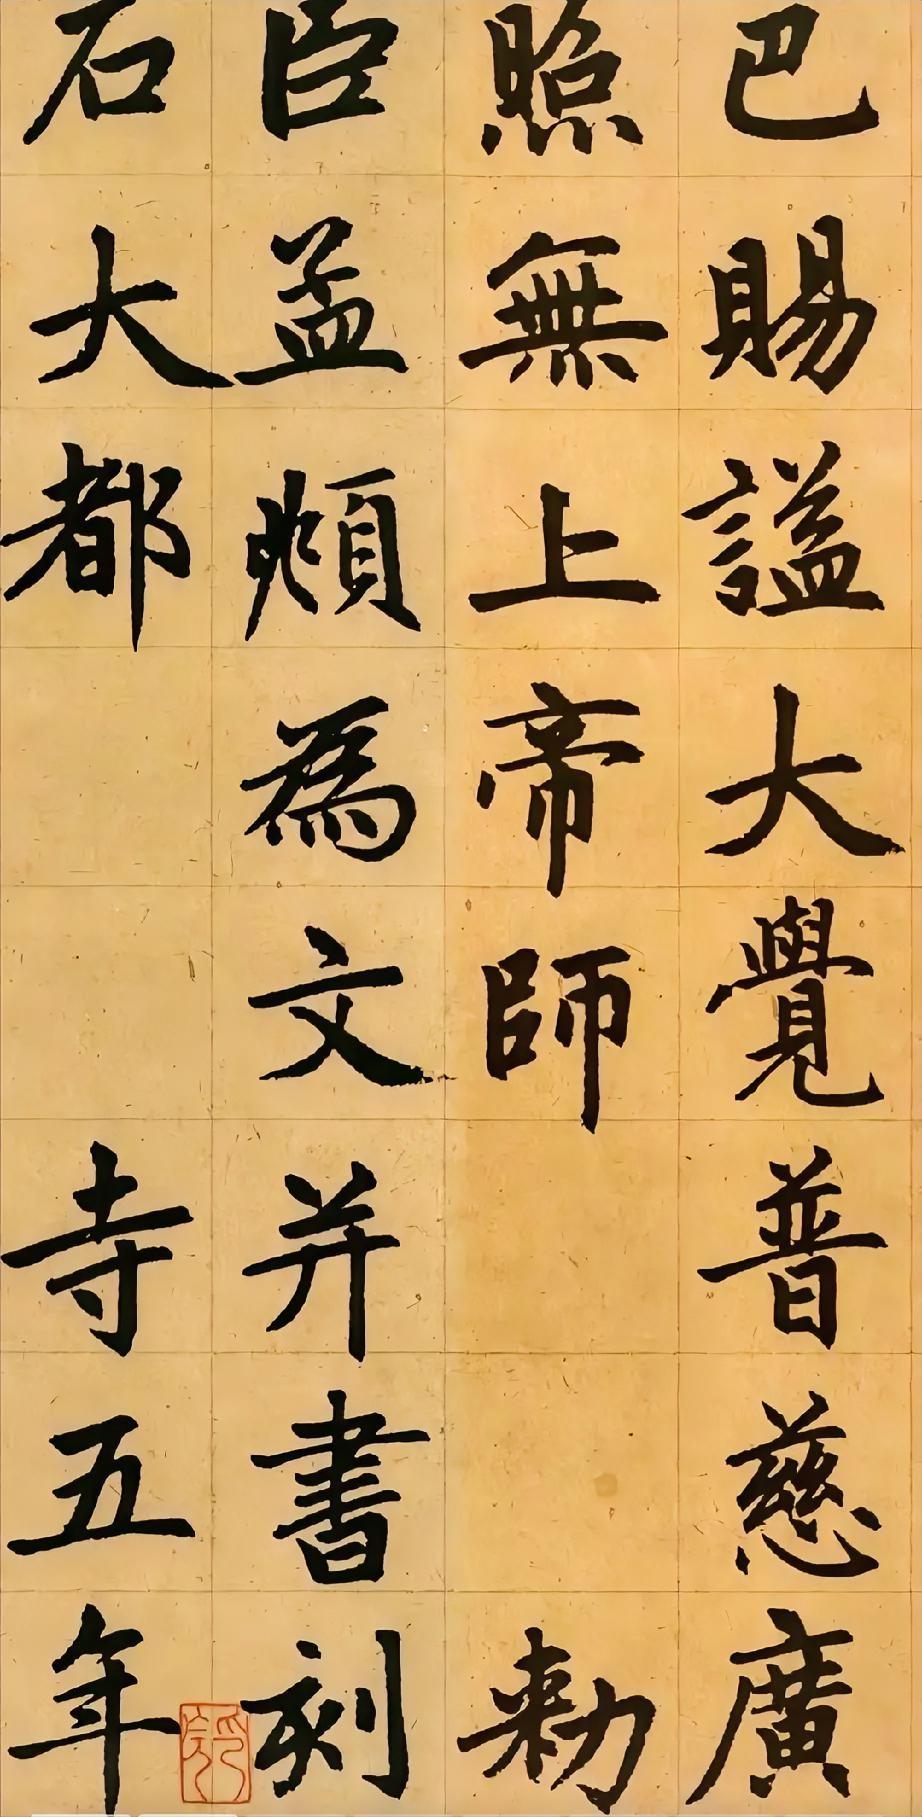 巴賜謚大覺普慈廣
照無上帝師 勅
臣孟頫為文并書刻
石大都 寺五年